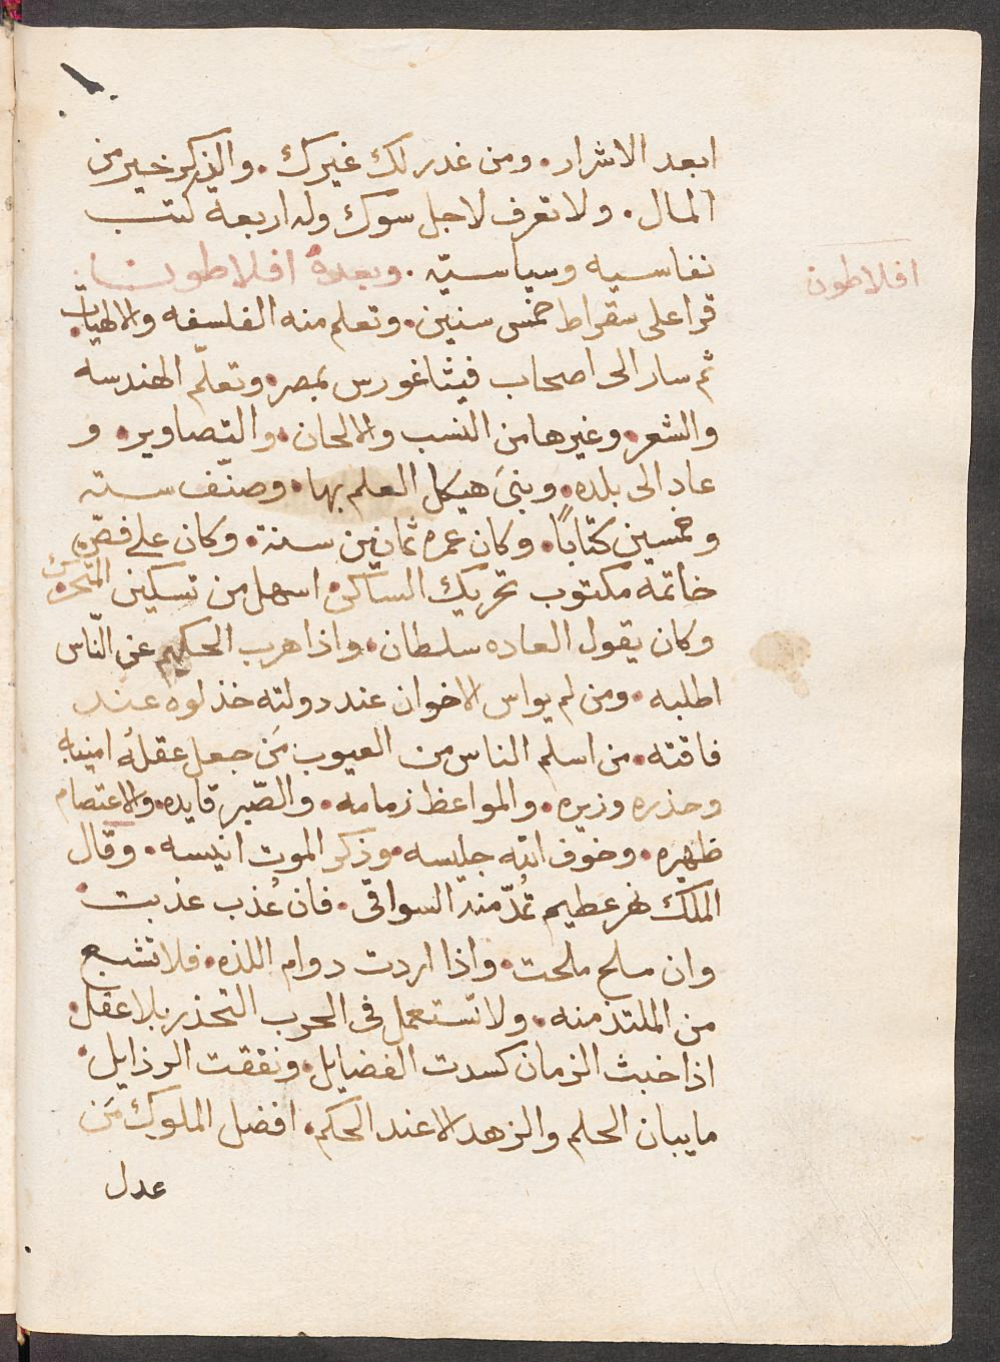 ابعد الاشرار. ومن غدر لك غيرك. والذكر خير من
المال. ولا تعرف لاجل سوك وله اربعة كتب
نفاسيه وسياسيّه. وبعدهُ افلاطون
افلاطون
قرا على سقراط خمس سنين. وتعلم منه الفلسفه والالهيات.
ثم سار الى اصحاب فيثاغورس بمصر. وتعلّم الهندسه
والشعر. وغيرها من النسب والالحان. والتصاوير. و
عاد الى بلده. وبنىَ هيكل العلم بها. وصنّف سته
وخمسين كتابًا. وكان عمره ثمانين سنة. وكان على فصّ
خاتمه مكتوب تحريك الساكن. اسهل من تسكين المتحرك
وكان يقول العاده سلطان. واذا هرب الحكيم عن النّاس
اطلبه. ومن لم يواس الاخوان عند دولته خذلوه عند
فاقته. من اسلم الناس من العيوب مَن جعل عقلهُ امينه
وحذره وزيره. والمواعظ زمامه. والصّبر قايده. والاعتصام
ظهيره. وخوف الله جليسه. وذكر الموت انيسه. وقال
الملك نهر عظيم تمُدّ منه السواقى. فان عُذب عذبت.
وان ملح ملحت. واذا اردت دوام اللذه. فلا تشبع
من الملتذ منه. ولا تستعمل فى الحرب التحذر بلا عقل.
اذا خبث الزمان كسدت الفضايل. ونفقت الرذايل.
ما يبان الحلم والزهد الا عند الحكم. افضل الملوك مَن
عدل